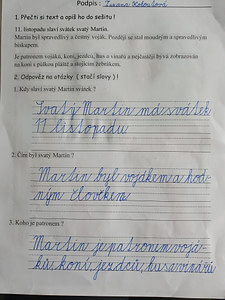 Podpis :
1. Přečti si text a opiš ho do sešitu !
11. listopadu slaví svatý Martin svátek.
Martin byl spravedlivý a čestný voják. Později se stal moudrým a spravedlivým
biskupem.
Je patronem vojáků, koní, jezdců, hus a vinařů a nejčastěji bývá zobrazován
na koni s půlkou pláště a stojícím žebrákem.
2. Odpověz na otázky ( stačí slovy )
1. Kdy slaví svatý Martin svátek ?
Svatý Martin má svátek
11 listopadu
2. Čím byl svatý Martin ?
Martin byl vojákem a hod-
ným člověkem
3. Koho je patronem ?
Martin je patronem vojá-
ků, koní, jezdců, hus a vinářů